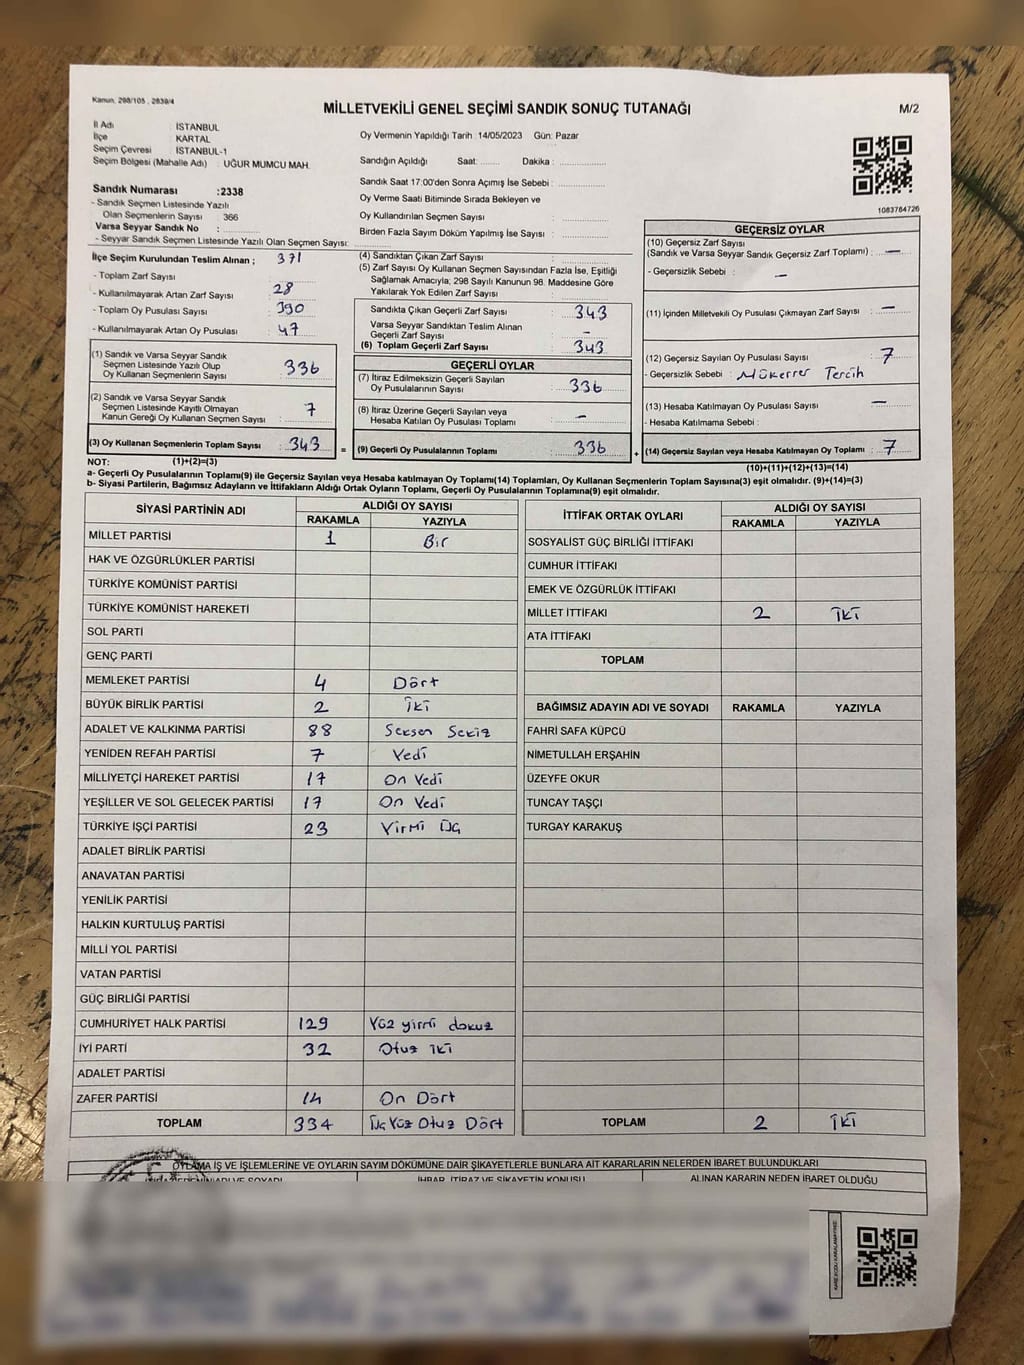 Kanun, 298/105 , 2839/4
MİLLETVEKİLİ GENEL SEÇİMİ SANDIK SONUÇ TUTANAĞI
M/2
İl Adı İSTANBUL
İlçe KARTAL
Seçim Çevresi İSTANBUL-1
Seçim Bölgesi (Mahalle Adı) : UĞUR MUMCU MAH.
Oy Vermenin Yapıldığı Tarih : 14/05/2023 Gün: Pazar
Sandığın Açıldığı Saat: ....... Dakika : ..............
Sandık Saat 17:00'den Sonra Açılmış İse Sebebi : ..............
Oy Verme Saati Bitiminde Sırada Bekleyen ve
Oy Kullandırılan Seçmen Sayısı : ..............
Birden Fazla Sayım Döküm Yapılmış İse Sayısı : ..............
1083784726
Sandık Numarası :2338
- Sandık Seçmen Listesinde Yazılı
Olan Seçmenlerin Sayısı : 366
Varsa Seyyar Sandık No :
- Seyyar Sandık Seçmen Listesinde Yazılı Olan Seçmen Sayısı:
İlçe Seçim Kurulundan Teslim Alınan ; 371
- Toplam Zarf Sayısı :
- Kullanılmayarak Artan Zarf Sayısı : 28
- Toplam Oy Pusulası Sayısı : 390
- Kullanılmayarak Artan Oy Pusulası : 47
(1) Sandık ve Varsa Seyyar Sandık
Seçmen Listesinde Yazılı Olup
Oy Kullanan Seçmenlerin Sayısı : 336
(2) Sandık ve Varsa Seyyar Sandık
Seçmen Listesinde Kayıtlı Olmayan
Kanun Gereği Oy Kullanan Seçmen Sayısı : 7
(3) Oy Kullanan Seçmenlerin Toplam Sayısı : 343 =
(4) Sandıktan Çıkan Zarf Sayısı :
(5) Zarf Sayısı Oy Kullanan Seçmen Sayısından Fazla İse, Eşitliği
Sağlamak Amacıyla; 298 Sayılı Kanunun 98. Maddesine Göre
Yakılarak Yok Edilen Zarf Sayısı :
Sandıkta Çıkan Geçerli Zarf Sayısı : 343
Varsa Seyyar Sandıktan Teslim Alınan
Geçerli Zarf Sayısı : -
(6) Toplam Geçerli Zarf Sayısı : 343
GEÇERLİ OYLAR
(7) İtiraz Edilmeksizin Geçerli Sayılan
Oy Pusulalarının Sayısı : 336
(8) İtiraz Üzerine Geçerli Sayılan veya
Hesaba Katılan Oy Pusulası Toplamı : -
(9) Geçerli Oy Pusulalarının Toplamı : 336 +
GEÇERSİZ OYLAR
(10) Geçersiz Zarf Sayısı
(Sandık ve Varsa Seyyar Sandık Geçersiz Zarf Toplamı) : -
- Geçersizlik Sebebi : -
(11) İçinden Milletvekili Oy Pusulası Çıkmayan Zarf Sayısı : -
(12) Geçersiz Sayılan Oy Pusulası Sayısı : 7
- Geçersizlik Sebebi : Mükerrer Tercih
(13) Hesaba Katılmayan Oy Pusulası Sayısı : -
- Hesaba Katılmama Sebebi :
(14) Geçersiz Sayılan veya Hesaba Katılmayan Oy Toplamı : 7
NOT: (1)+(2)=(3)
(10)+(11)+(12)+(13)=(14)
a- Geçerli Oy Pusulalarının Toplamı(9) ile Geçersiz Sayılan veya Hesaba katılmayan Oy Toplamı(14) Toplamları, Oy Kullanan Seçmenlerin Toplam Sayısına(3) eşit olmalıdır. (9)+(14)=(3)
b- Siyasi Partilerin, Bağımsız Adayların ve İttifakların Aldığı Ortak Oyların Toplamı, Geçerli Oy Pusulalarının Toplamına(9) eşit olmalıdır.
SİYASİ PARTİNİN ADI ALDIĞI OY SAYISI
RAKAMLA YAZIYLA
MİLLET PARTİSİ 1 Bir
HAK VE ÖZGÜRLÜKLER PARTİSİ
TÜRKİYE KOMÜNİST PARTİSİ
TÜRKİYE KOMÜNİST HAREKETİ
SOL PARTİ
GENÇ PARTİ
MEMLEKET PARTİSİ 4 Dört
BÜYÜK BİRLİK PARTİSİ 2 İki
ADALET VE KALKINMA PARTİSİ 88 Seksen Sekiz
YENİDEN REFAH PARTİSİ 7 Yedi
MİLLİYETÇİ HAREKET PARTİSİ 17 On Yedi
YEŞİLLER VE SOL GELECEK PARTİSİ 17 On Yedi
TÜRKİYE İŞÇİ PARTİSİ 23 Yirmi Üç
ADALET BİRLİK PARTİSİ
ANAVATAN PARTİSİ
YENİLİK PARTİSİ
HALKIN KURTULUŞ PARTİSİ
MİLLİ YOL PARTİSİ
VATAN PARTİSİ
GÜÇ BİRLİĞİ PARTİSİ
CUMHURİYET HALK PARTİSİ 129 Yüz yirmi dokuz
İYİ PARTİ 32 Otuz iki
ADALET PARTİSİ
ZAFER PARTİSİ 14 On Dört
TOPLAM 334 Üç Yüz Otuz Dört
İTTİFAK ORTAK OYLARI ALDIĞI OY SAYISI
RAKAMLA YAZIYLA
SOSYALİST GÜÇ BİRLİĞİ İTTİFAKI
CUMHUR İTTİFAKI
EMEK VE ÖZGÜRLÜK İTTİFAKI
MİLLET İTTİFAKI 2 İki
ATA İTTİFAKI
TOPLAM
BAĞIMSIZ ADAYIN ADI VE SOYADI RAKAMLA YAZIYLA
FAHRİ SAFA KÜPCÜ
NİMETULLAH ERŞAHİN
ÜZEYFE OKUR
TUNCAY TAŞÇI
TURGAY KARAKUŞ
TOPLAM 2 İki
OYLAMA İŞ VE İŞLEMLERİNE VE OYLARIN SAYIM DÖKÜMÜNE DAİR ŞİKAYETLERLE BUNLARA AİT KARARLARIN NELERDEN İBARET BULUNDUKLARI
İHBAR, İTİRAZ VE ŞİKAYETİN KONUSU ALINAN KARARIN NEDEN İBARET OLDUĞU